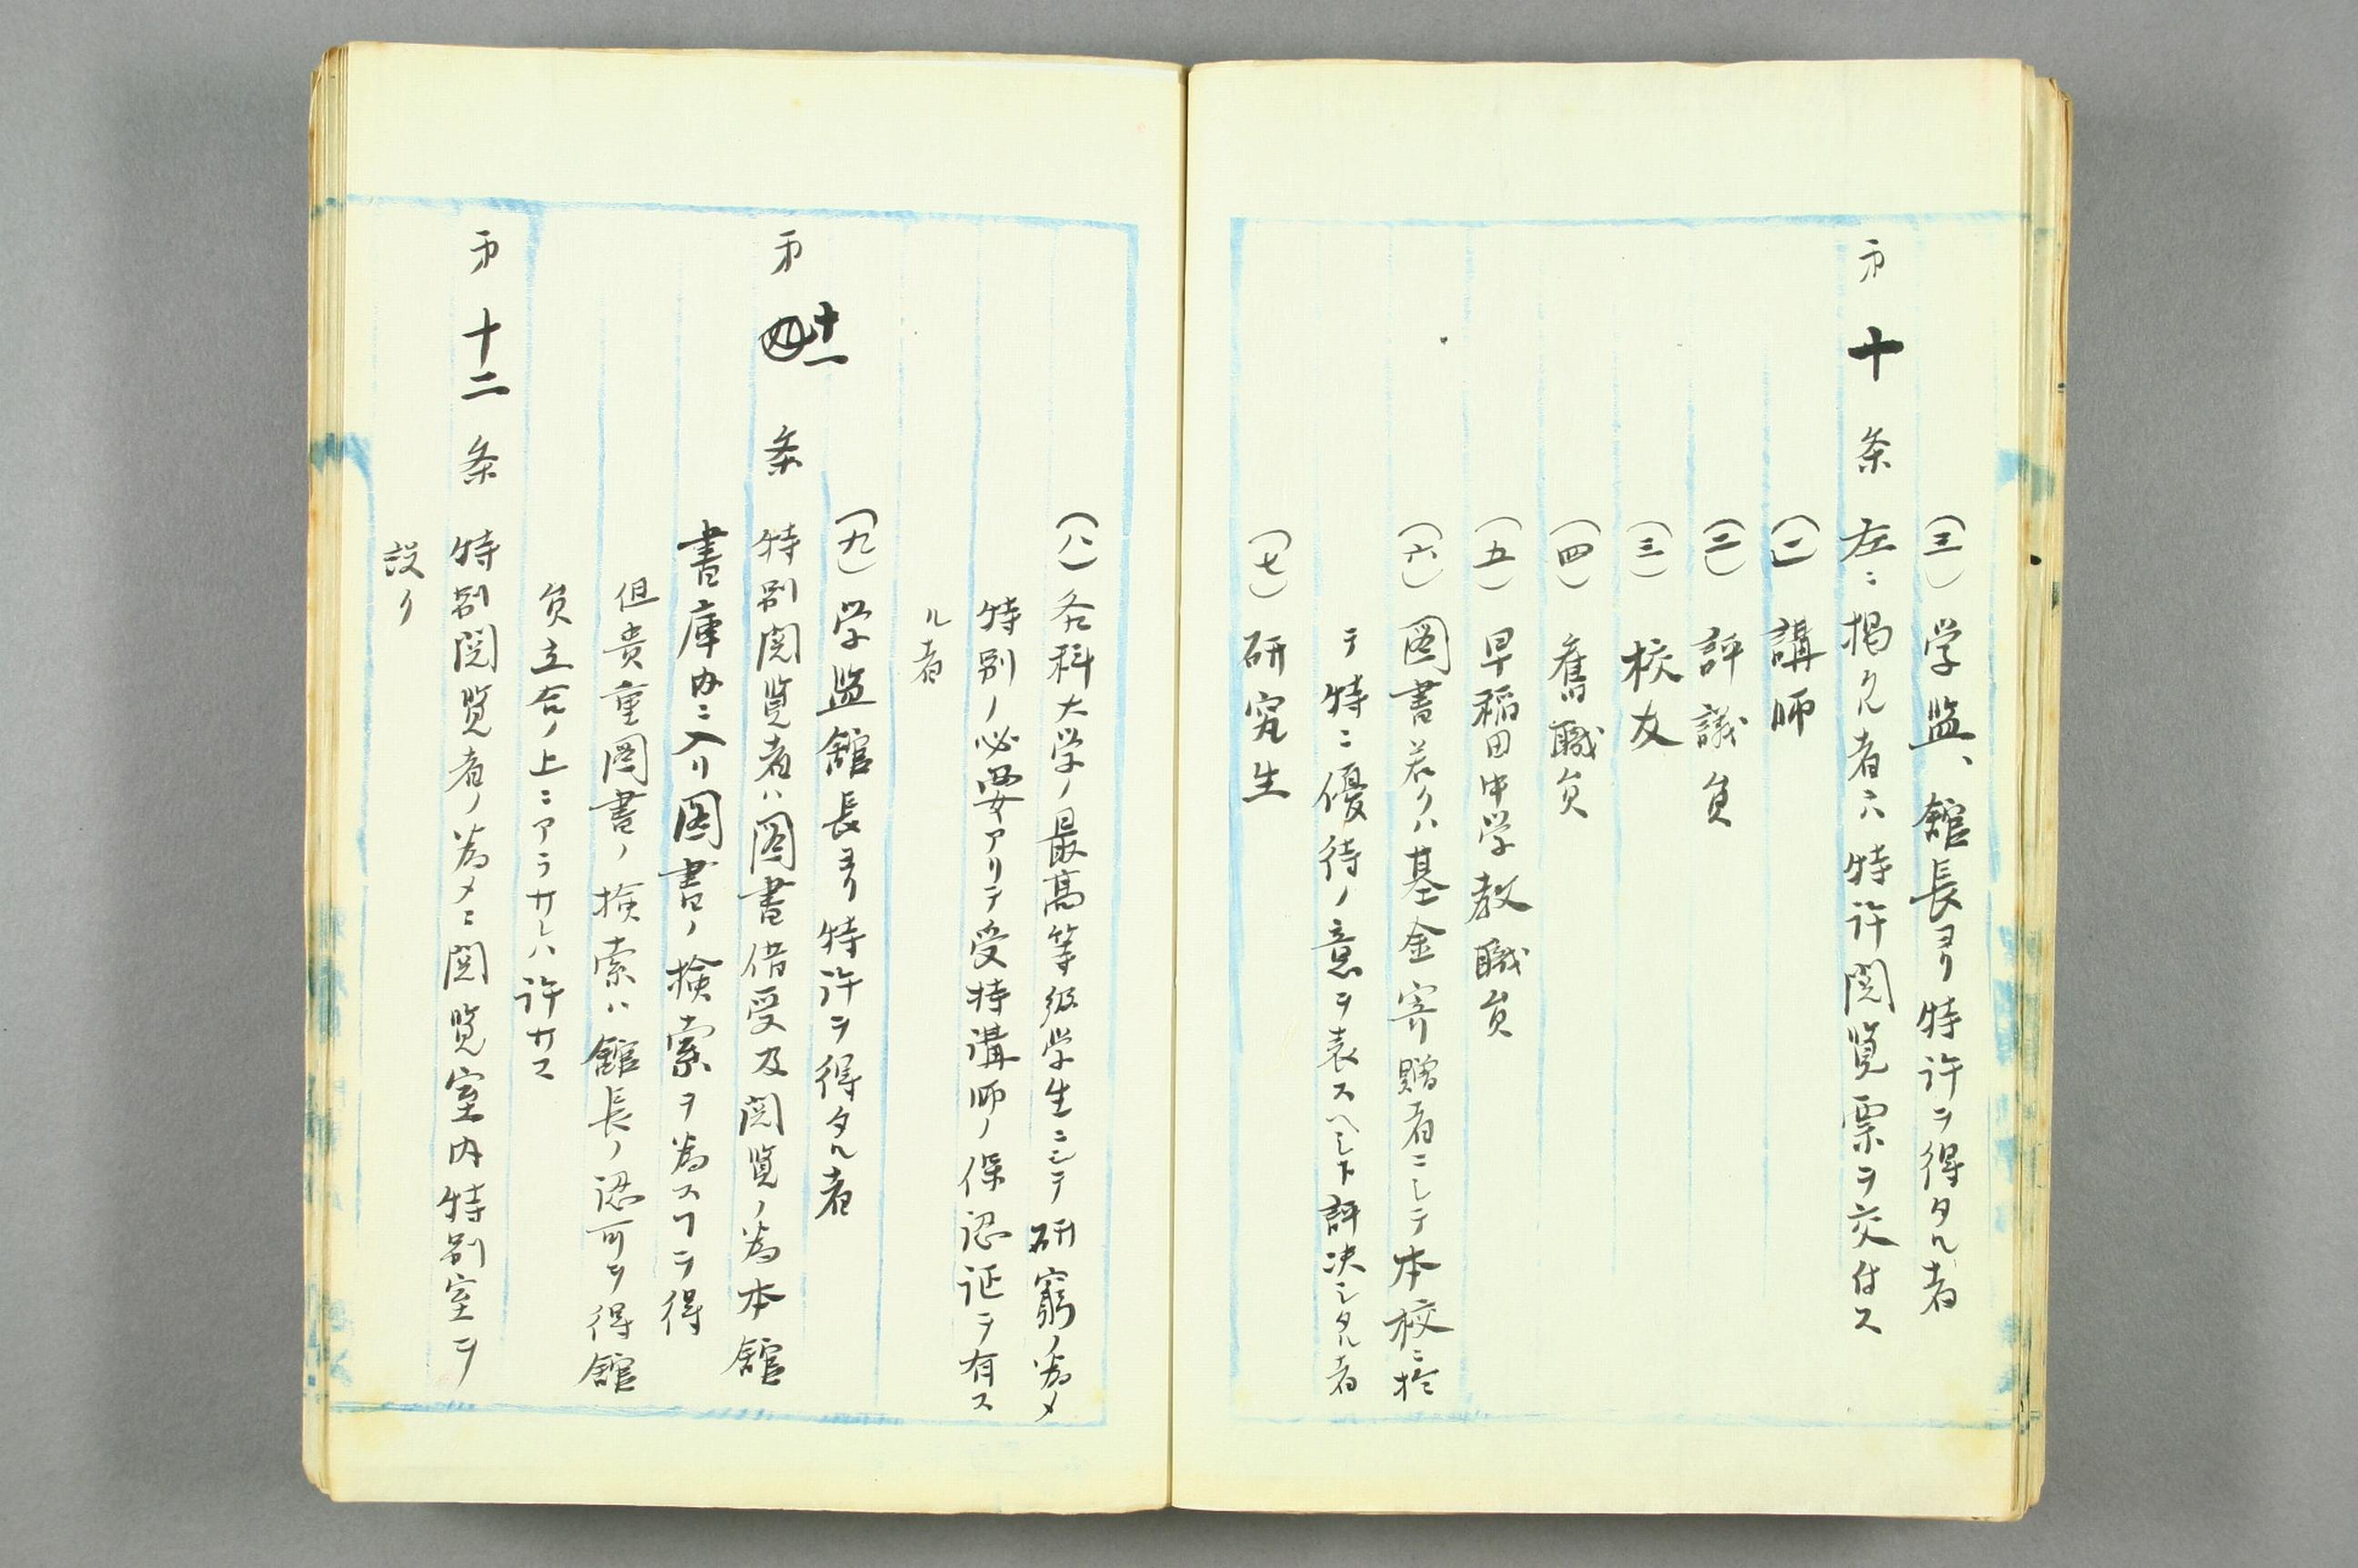 (三) 学監、舘長ヨリ特許ヲ得タル者
第十条 左ニ掲クル者ニハ特許閲覧票ヲ交付ス
(一) 講師
(二) 評議員
(三) 校友
(四) 旧職員
(五) 早稲田中学教職員
(六) 図書若クハ基金寄贈者ニシテ本校ニ於
テ特ニ優待ノ意ヲ表スヘシト評決シタル者
(七) 研究生
(八) 各科大学ノ最高等級学生ニシテ研窮ノ為メ
特別ノ必要アリテ受持講師ノ保認証ヲ有ス
ル者
(九) 学監舘長ヨリ特許ヲ得タル者
第十一条 特別閲覧者ハ図書借受及閲覧ノ為本舘
書庫内ニ入リ図書ノ検索ヲ為スヿヲ得
但貴重図書ノ検索ハ舘長ノ認可ヲ得舘
員立合ノ上ニアラサレハ許サス
第十二条 特別閲覧者ノ為メニ閲覧室内特別室ヲ
設ク